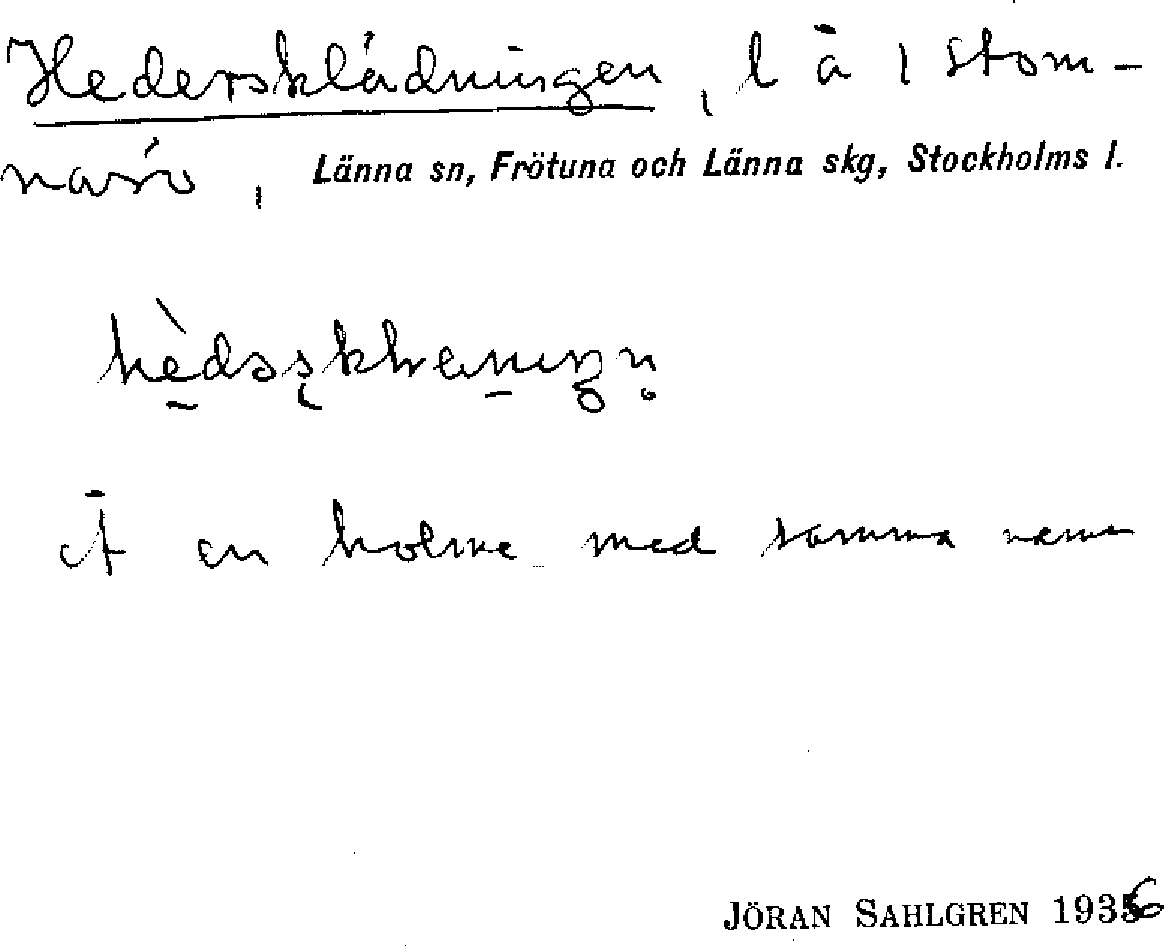 Hedersklädningen, l å l Stom-
narö, Länna sn, Frötuna och Länna skg, Stockholms l.
Å en holme med samma namn
JÖRAN SAHLGREN 1936